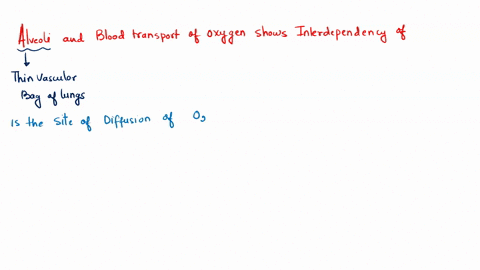 Alveoli and Blood transport of oxygen shows Interdependency of
Thin vascular
Bag of lungs
is the site of Diffusion of O₂